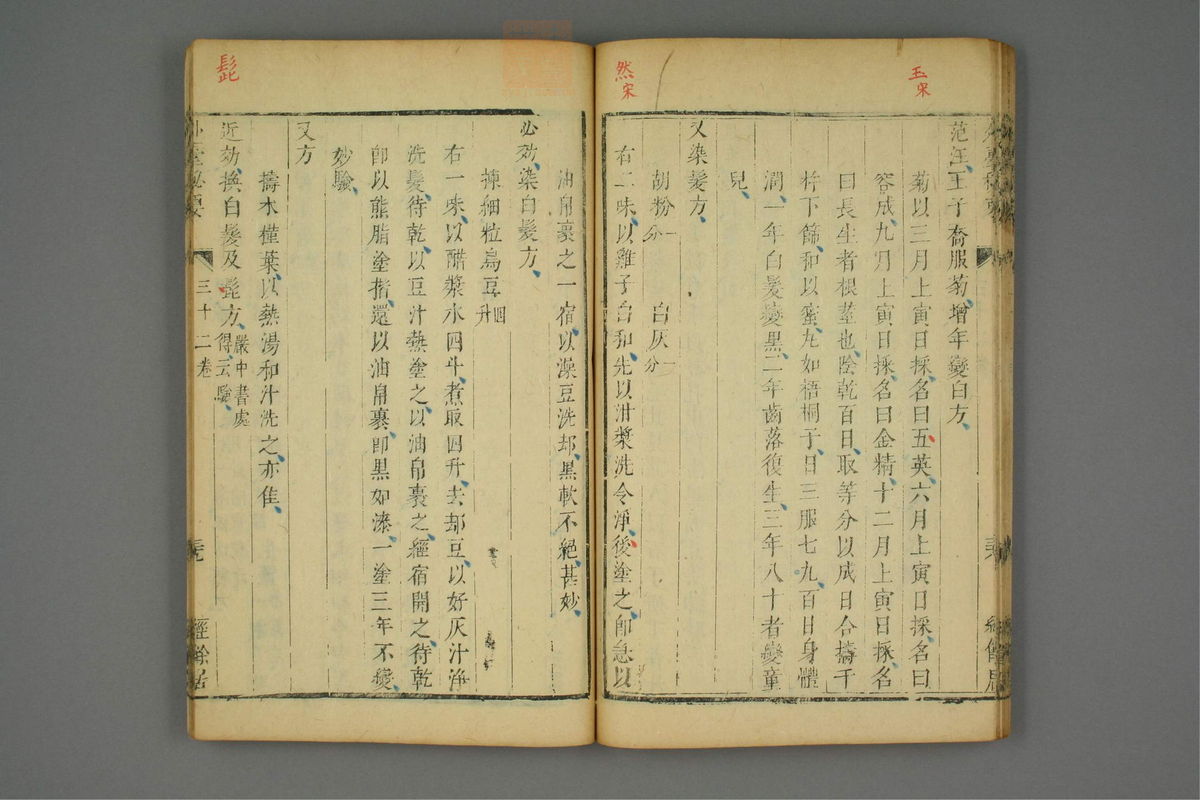 玉
宋
然
宋
范汪王子喬服菊增年變白方
菊以三月上寅日採名曰五英六月上寅日採名曰
容成九月上寅日採名曰金精十二月上寅日採名
曰長生者根莖也陰乾百日取等分以成日合擣千
杵下篩和以蜜丸如梧桐子日三服七丸百日身體
潤一年白髮變黑二年齒落復生三年八十者變童
兒
又染髮方
胡粉一分 白灰一分
右二味以雞子白和先以泔漿洗令淨後塗之即急以
髭
油帛裹之一宿以澡豆洗却黑軟不絕甚妙
必効染白髮方
揀細粒烏豆四升
右一味以醋漿水四斗煮取四升去却豆以好灰汁淨
洗髮待乾以豆汁熱塗之以油帛裹之經宿開之待乾
即以熊脂塗揩還以油帛裹即黑如漆一塗三年不變
妙驗
又方
擣木槿葉以熱湯和汁洗之亦佳
近効換白髮及髭方嚴中書處得云驗
外臺秘要 三十二卷 經餘居